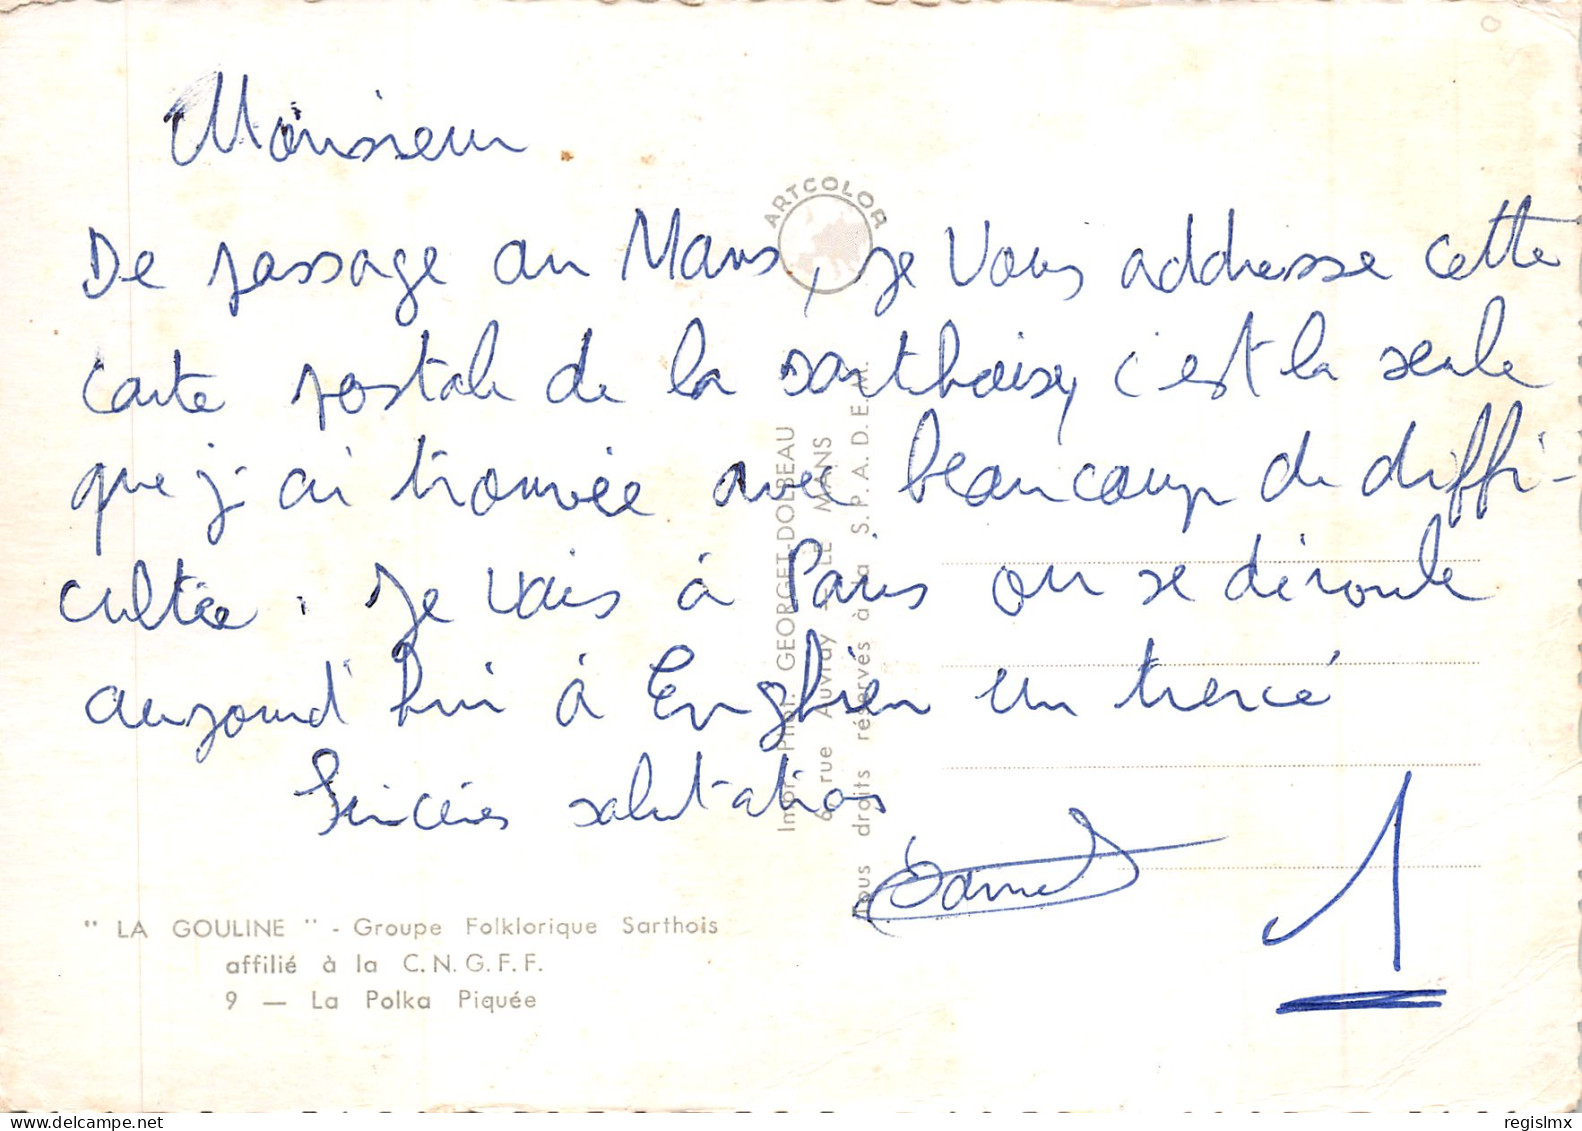 Monsieur
De passage au Mans, je Vous addresse cette
carte postale de la sarthoise, c'est la seule
que j'ai trouvée avec beaucoup de diffi-
cultée. Je vais à Paris ou se déroule
aujourd'hui à Enghien un tiercé
Sincères salutations
1
ARTCOLOR
Impr. Phot. GEORGET-DOLBEAU
6, rue Auvray - LE MANS
Tous droits réservés à la S.P.A.D.E.M.
" LA GOULINE " - Groupe Folklorique Sarthois
affilié à la C.N.G.F.F.
9 — La Polka Piquée
regislmx